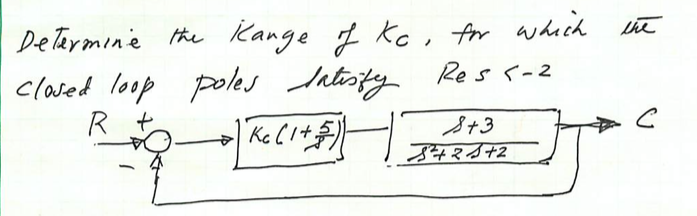 Determine the Range of Kc, for which the
closed loop poles satisfy Re s < -2
R + Kc(1+5/s) s+3 C
- s²+2s+2